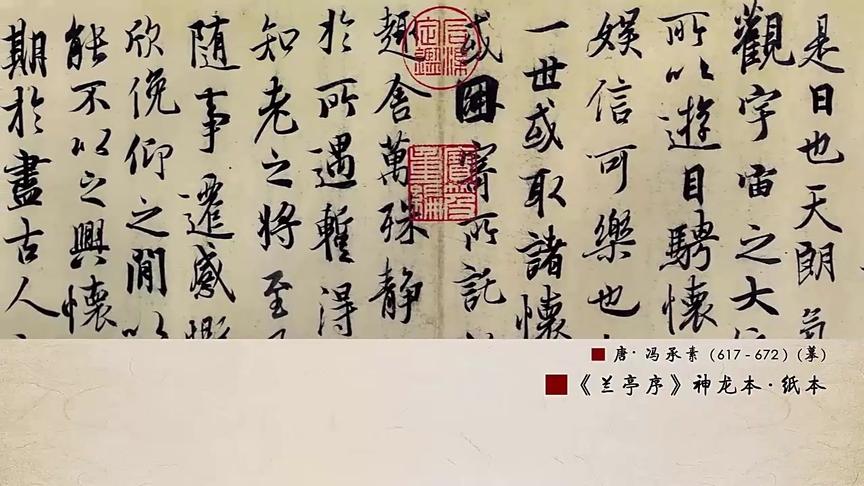 是日也天朗氣
觀宇宙之大
所以遊目騁懷
娛信可樂也
一世或取諸懷
或因寄所託
趣舍萬殊静
於所遇暫得
知老之將至
隨事遷感慨
欣俛仰之閒以
能不以之興懷
期於盡古人
石渠
定鑑
寶笈
重編
唐·冯承素（617-672）（摹）
《兰亭序》神龙本·纸本